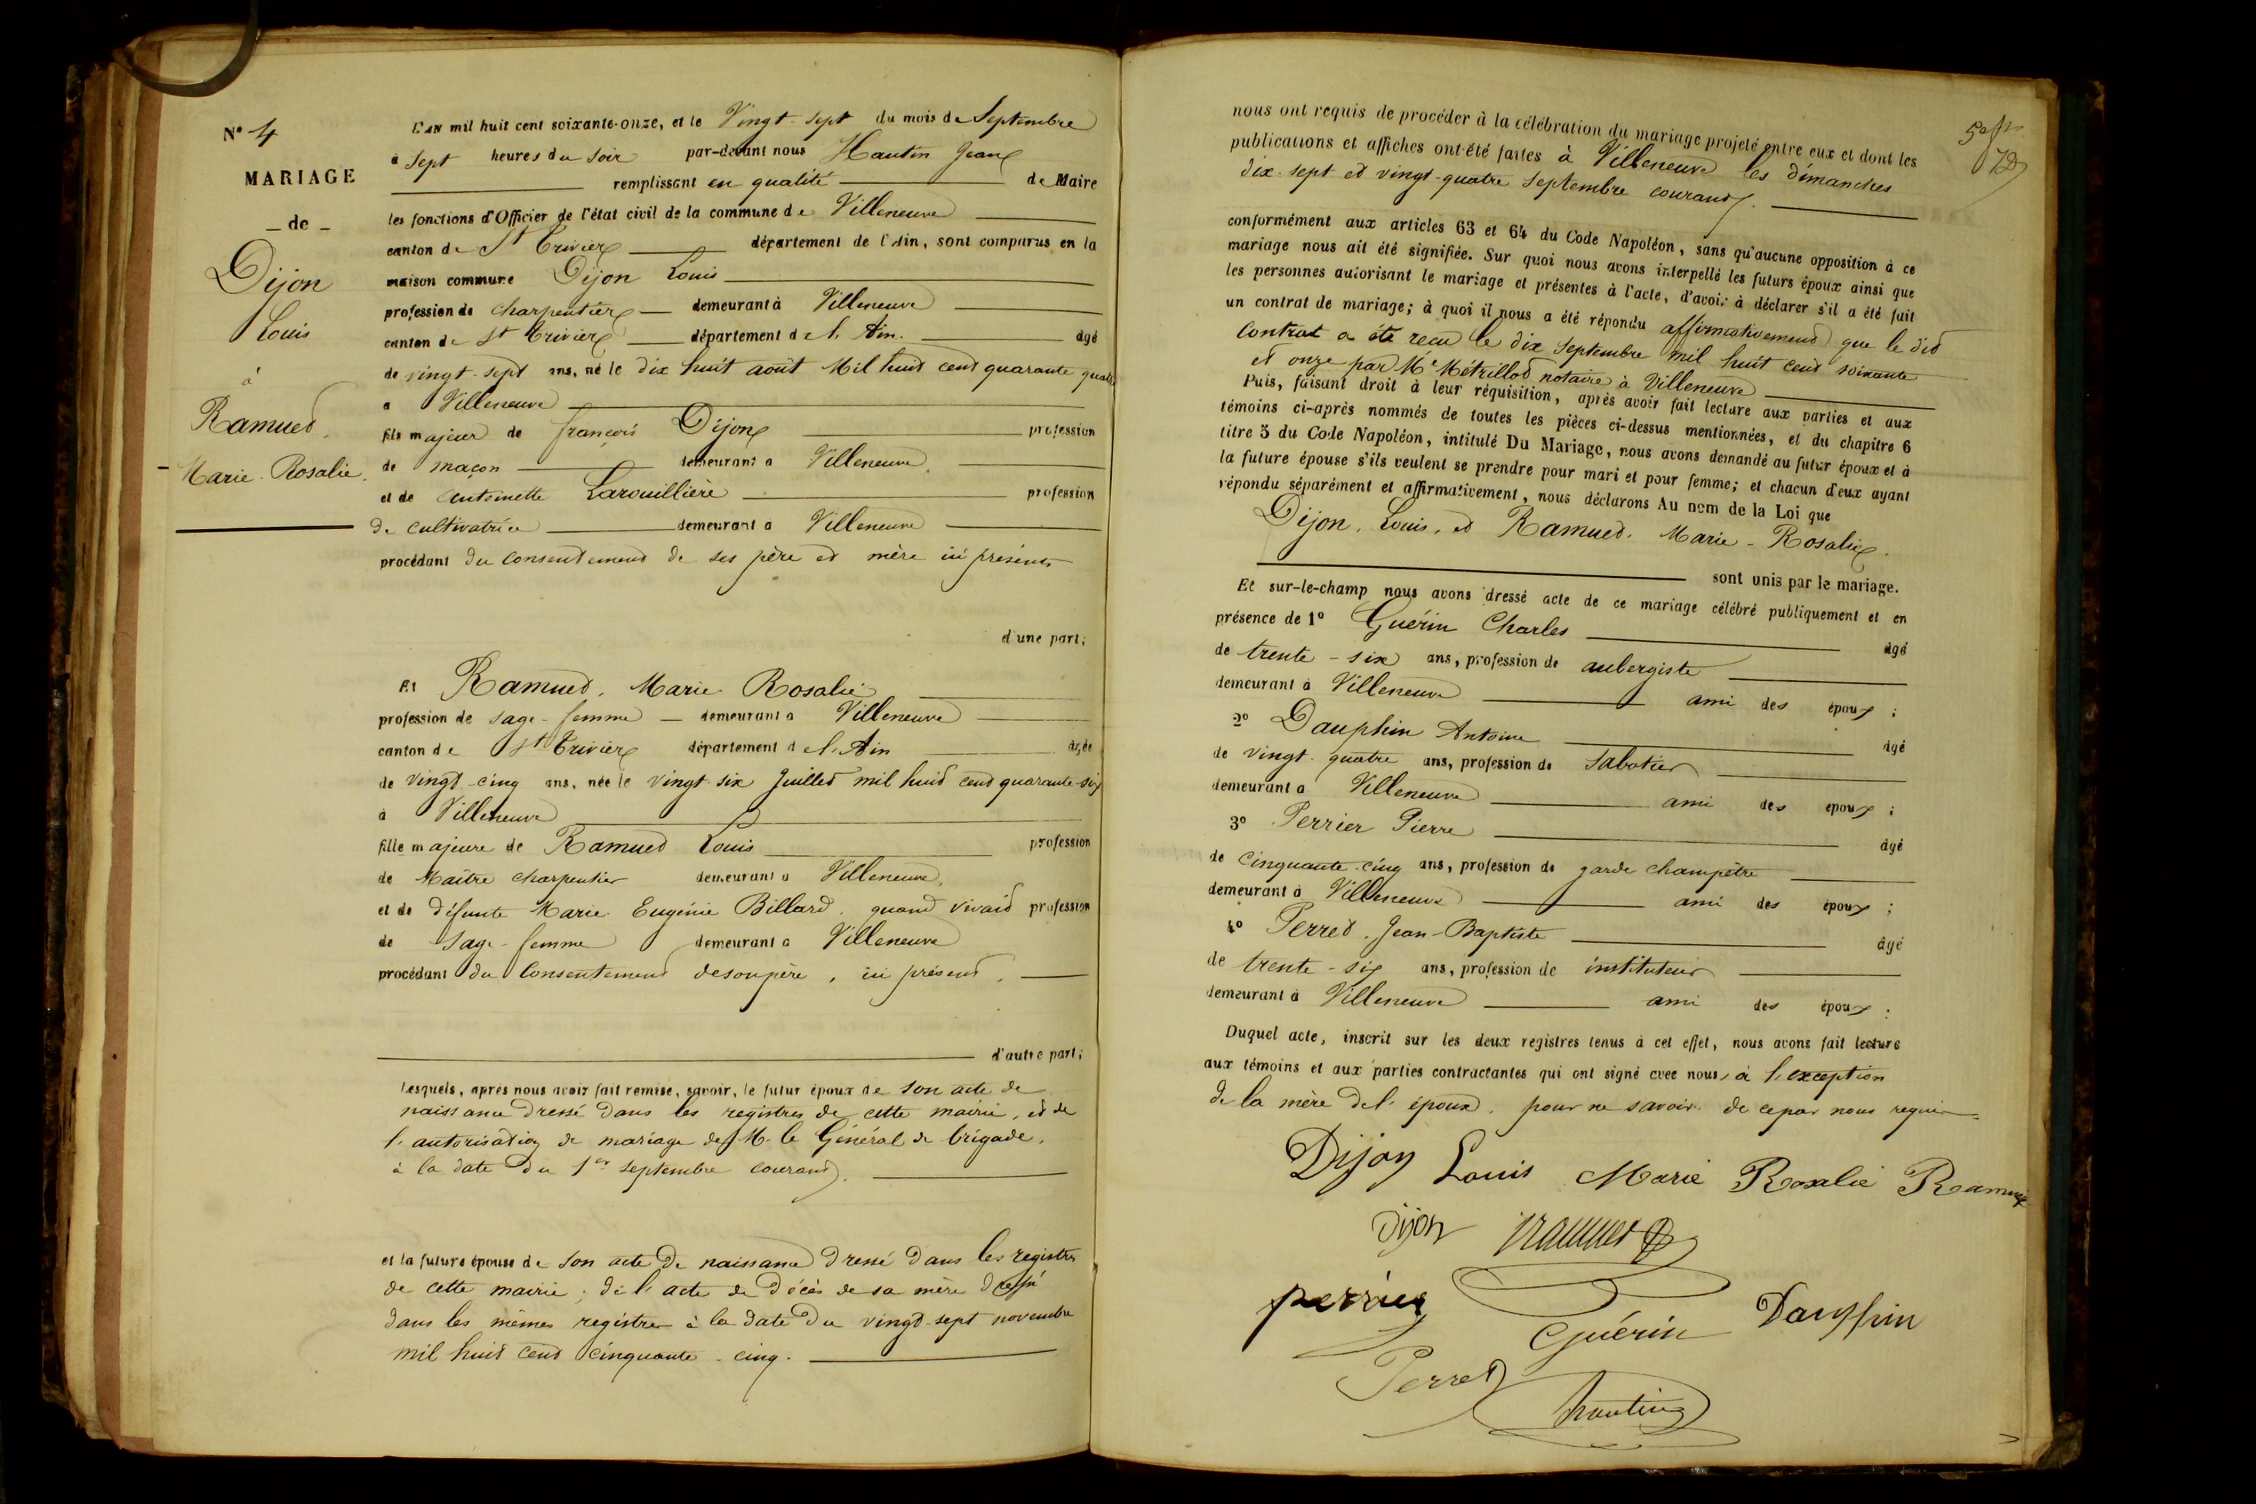 N° 4
MARIAGE
de
Dijon
Louis
à
Ramuet
Marie-Rosalie
L'AN mil huit cent soixante-onze, et le Vingt-sept du mois de Septembre
à sept heures du soir par-devant nous Hautin Jean
remplissant en qualité de Maire
les fonctions d'Officier de l'état civil de la commune de Villeneuve
canton de St Trivier département de l'Ain, sont comparus en la
maison commune Dijon Louis
profession de charpentier demeurant à Villeneuve
canton de St Trivier département de l'Ain. âgé
de vingt-sept ans, né le dix huit août Mil huit cent quarante quatre
à Villeneuve
fils majeur de françois Dijon profession
de maçon demeurant à Villeneuve,
et de Antoinette Larouillière profession
de cultivatrice demeurant à Villeneuve
procédant du consentement de ses père et mère ici présents
d'une part;
Et Ramuet, Marie Rosalie
profession de sage-femme demeurant à Villeneuve
canton de St Trivier département de l'Ain âgée
de vingt-cinq ans, née le vingt-six Juillet mil huit cent quarante-six
à Villeneuve
fille majeure de Ramuet Louis profession
de Maître charpentier demeurant à Villeneuve,
et de défunte Marie Eugénie Billard, quand vivait profession
de sage-femme demeurant à Villeneuve
procédant du Consentement de son père, ici présent,
d'autre part;
Lesquels, après nous avoir fait remise, savoir, le futur époux de son acte de
naissance dressé dans les registres de cette mairie, et de
l'autorisation de mariage de M. le Général de brigade,
à la date du 1er septembre courant.
et la future épouse de son acte de naissance dressé dans les registres
de cette mairie; de l'acte de décès de sa mère dressé
dans les mêmes registres à la date du vingt-sept novembre
mil huit cent cinquante-cinq.
nous ont requis de procéder à la célébration du mariage projeté entre eux et dont les
publications et affiches ont été faites à Villeneuve les dimanches
dix-sept et vingt-quatre Septembre courant.
conformément aux articles 63 et 64 du Code Napoléon, sans qu'aucune opposition à ce
mariage nous ait été signifiée. Sur quoi nous avons interpellé les futurs époux ainsi que
les personnes autorisant le mariage et présentes à l'acte, d'avoir à déclarer s'il a été fait
un contrat de mariage; à quoi il nous a été répondu affirmativement que le dit
Contrat a été reçu le dix Septembre mil huit cent soixante
et onze par Me Métrillot notaire à Villeneuve
Puis, faisant droit à leur réquisition, après avoir fait lecture aux parties et aux
témoins ci-après nommés de toutes les pièces ci-dessus mentionnées, et du chapitre 6
titre 5 du Code Napoléon, intitulé Du Mariage, nous avons demandé au futur époux et à
la future épouse s'ils veulent se prendre pour mari et pour femme; et chacun d'eux ayant
répondu séparément et affirmativement, nous déclarons Au nom de la Loi que
Dijon, Louis, et Ramuet, Marie-Rosalie.
sont unis par le mariage.
Et sur-le-champ nous avons dressé acte de ce mariage célébré publiquement et en
présence de 1° Guérin Charles âgé
de trente-six ans, profession de aubergiste
demeurant à Villeneuve ami des époux;
2° Dauphin Antoine âgé
de vingt-quatre ans, profession de sabotier
demeurant à Villeneuve ami des époux;
3° Perrier Pierre âgé
de cinquante-cinq ans, profession de garde champêtre
demeurant à Villeneuve ami des époux;
4° Perret, Jean-Baptiste âgé
de trente-six ans, profession de instituteur
demeurant à Villeneuve ami des époux;
Duquel acte, inscrit sur les deux registres tenus à cet effet, nous avons fait lecture
aux témoins et aux parties contractantes qui ont signé avec nous, à l'exception
de la mère de l'époux, pour ne savoir de ce par nous requise
Dijon Louis Marie Rosalie Ramuet
Dijon Ramuet
perrier Guérin Dauphin
Perret
Hautin